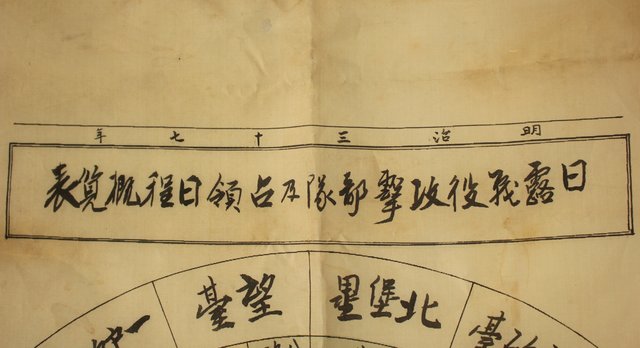 明治三十七年
日露戦役攻撃部隊及占領日程概覧表
北堡壘
望臺